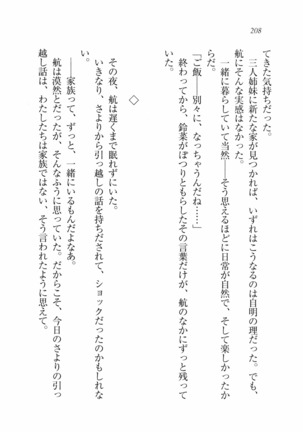 208
てきた気持ちだった。
三人姉妹に新たな家が見つかれば、いずれはこうなるのは自明の理だった。でも、
航にそんな実感はなかった。
一緒に暮らしていて当然――そう思えるほどに日常が自然で、そして楽しかったか
らだ。
「ご飯――別々に、なっちゃうんだね……」
終わってから、鈴菜がぽつりともらしたその言葉だけが、航のなかにずっと残って
いた。
◇
その夜、航は遅くまで眠れずにいた。
いきなり、さよりから引っ越しの話を持ちだされて、ショックだったのかもしれな
い。
――家族って、ずっと、一緒にいるもんだよなあ。
航は漠然とだったが、そんなふうに思っていた。だからこそ、今日のさよりの引っ
越し話は、わたしたちは家族ではない、そう言われたように思えて。